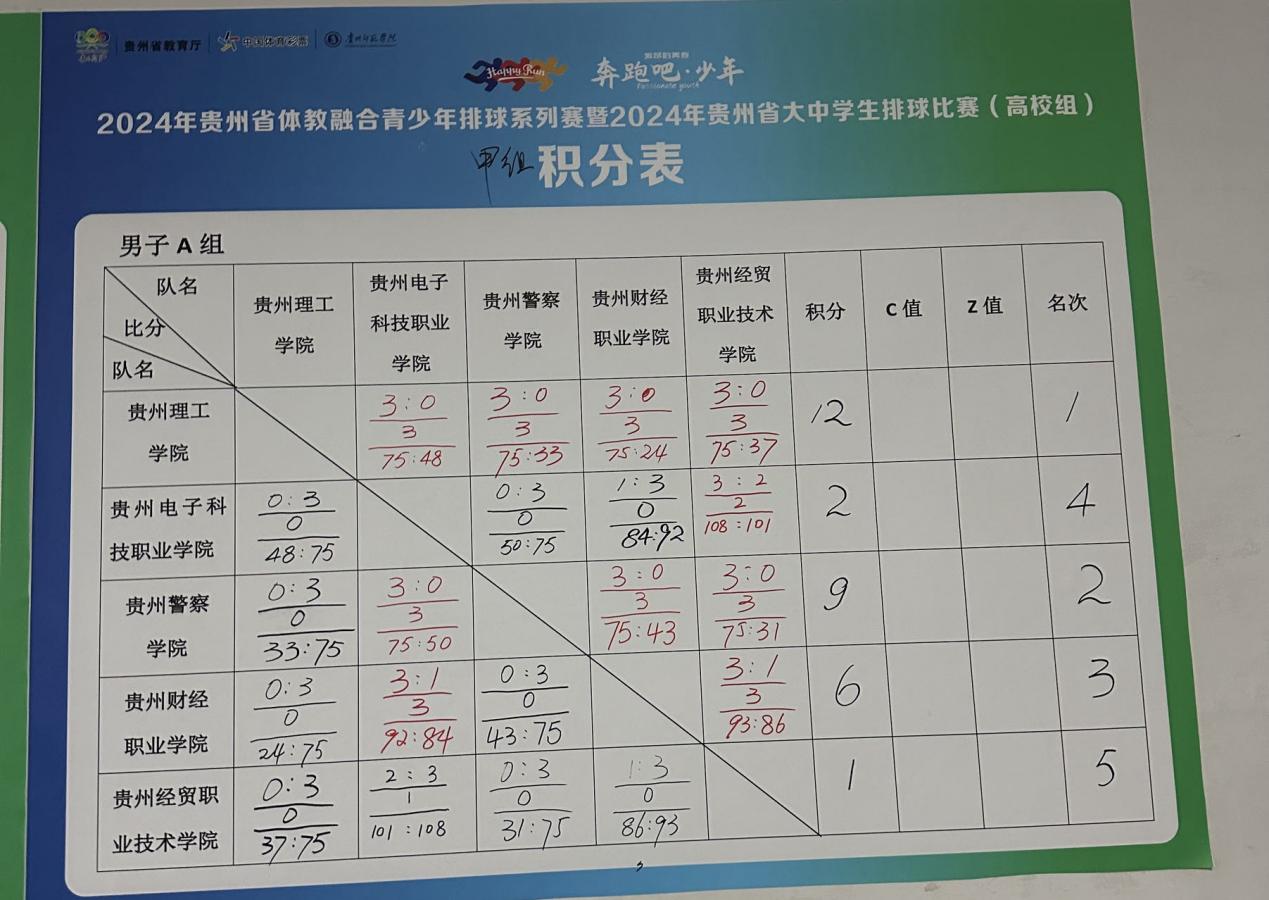 贵州省教育厅 中国体育彩票 贵州师范学院
Happy Run 奔跑吧·少年
Passionate youth
2024年贵州省体教融合青少年排球系列赛暨2024年贵州省大中学生排球比赛（高校组）
甲组 积分表
男子 A 组
队名
比分
队名
贵州理工
学院
贵州电子
科技职业
学院
贵州警察
学院
贵州财经
职业学院
贵州经贸
职业技术
学院
积分
C 值
Z 值
名次
贵州理工
学院
3:0
3
75:48
3:0
3
75:33
3:0
3
75:24
3:0
3
75:37
12
1
贵州电子科
技职业学院
0:3
0
48:75
0:3
0
50:75
1:3
0
84:92
3:2
2
108:101
2
4
贵州警察
学院
0:3
0
33:75
3:0
3
75:50
3:0
3
75:43
3:0
3
75:31
9
2
贵州财经
职业学院
0:3
0
24:75
3:1
3
92:84
0:3
0
43:75
3:1
3
93:86
6
3
贵州经贸职
业技术学院
0:3
0
37:75
2:3
1
101:108
0:3
0
31:75
1:3
0
86:93
1
5